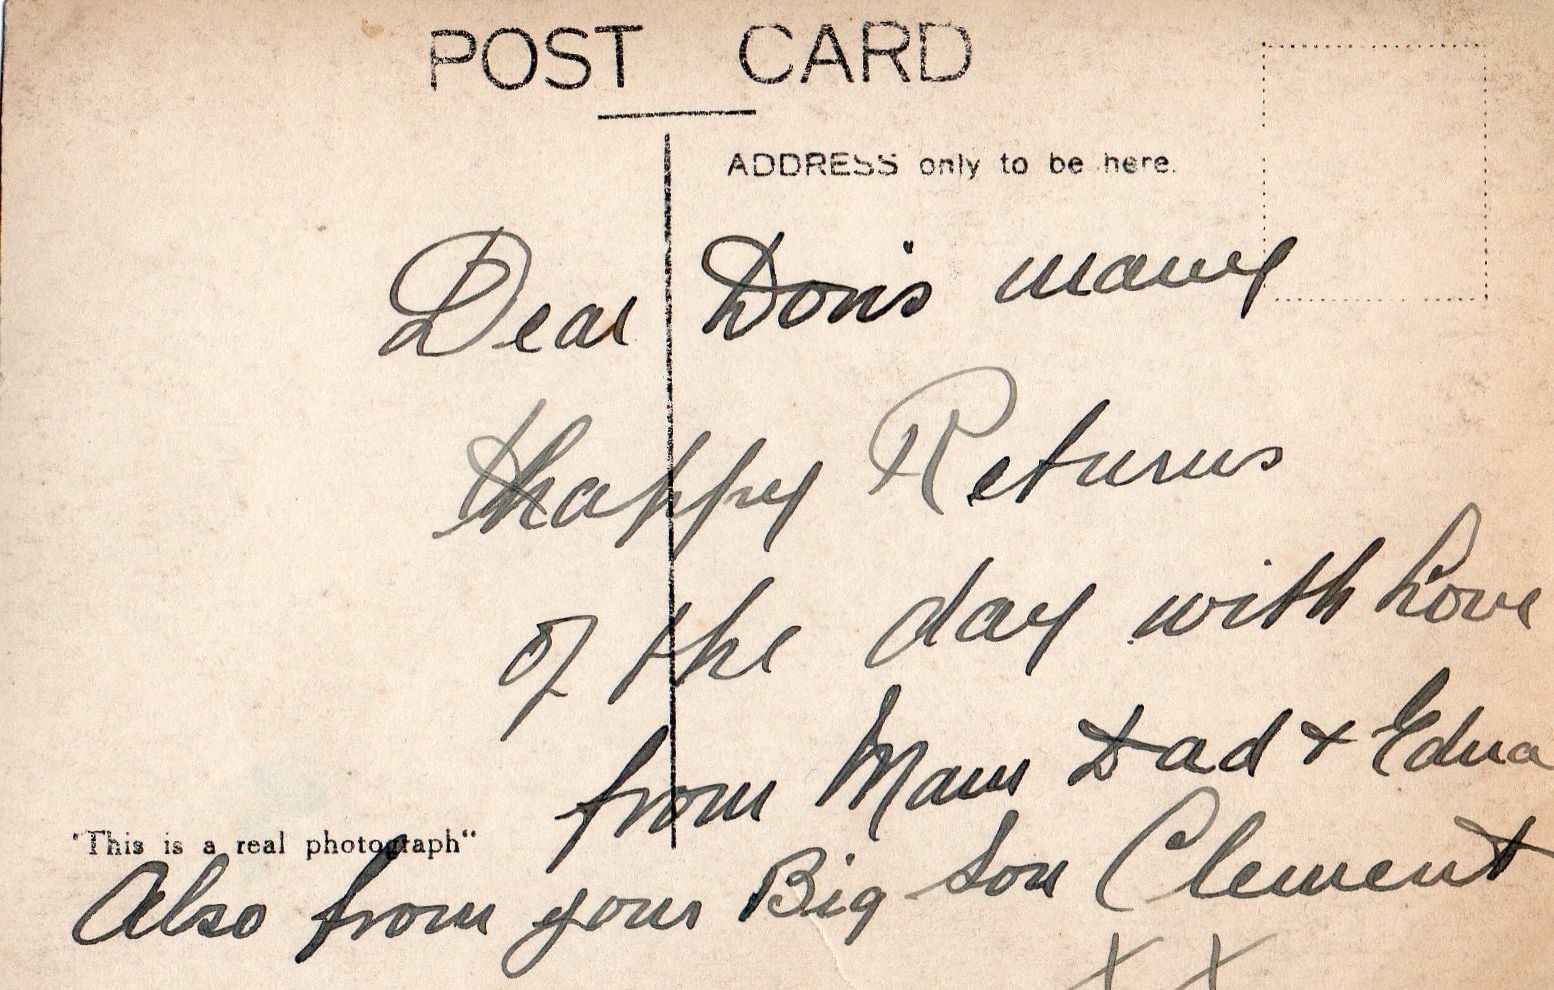 POST CARD
ADDRESS only to be here.
Dear Doris many
happy Returns
of the day with Love
from Mam Dad + Edna
"This is a real photograph"
Also from your Big Son Clement
X X